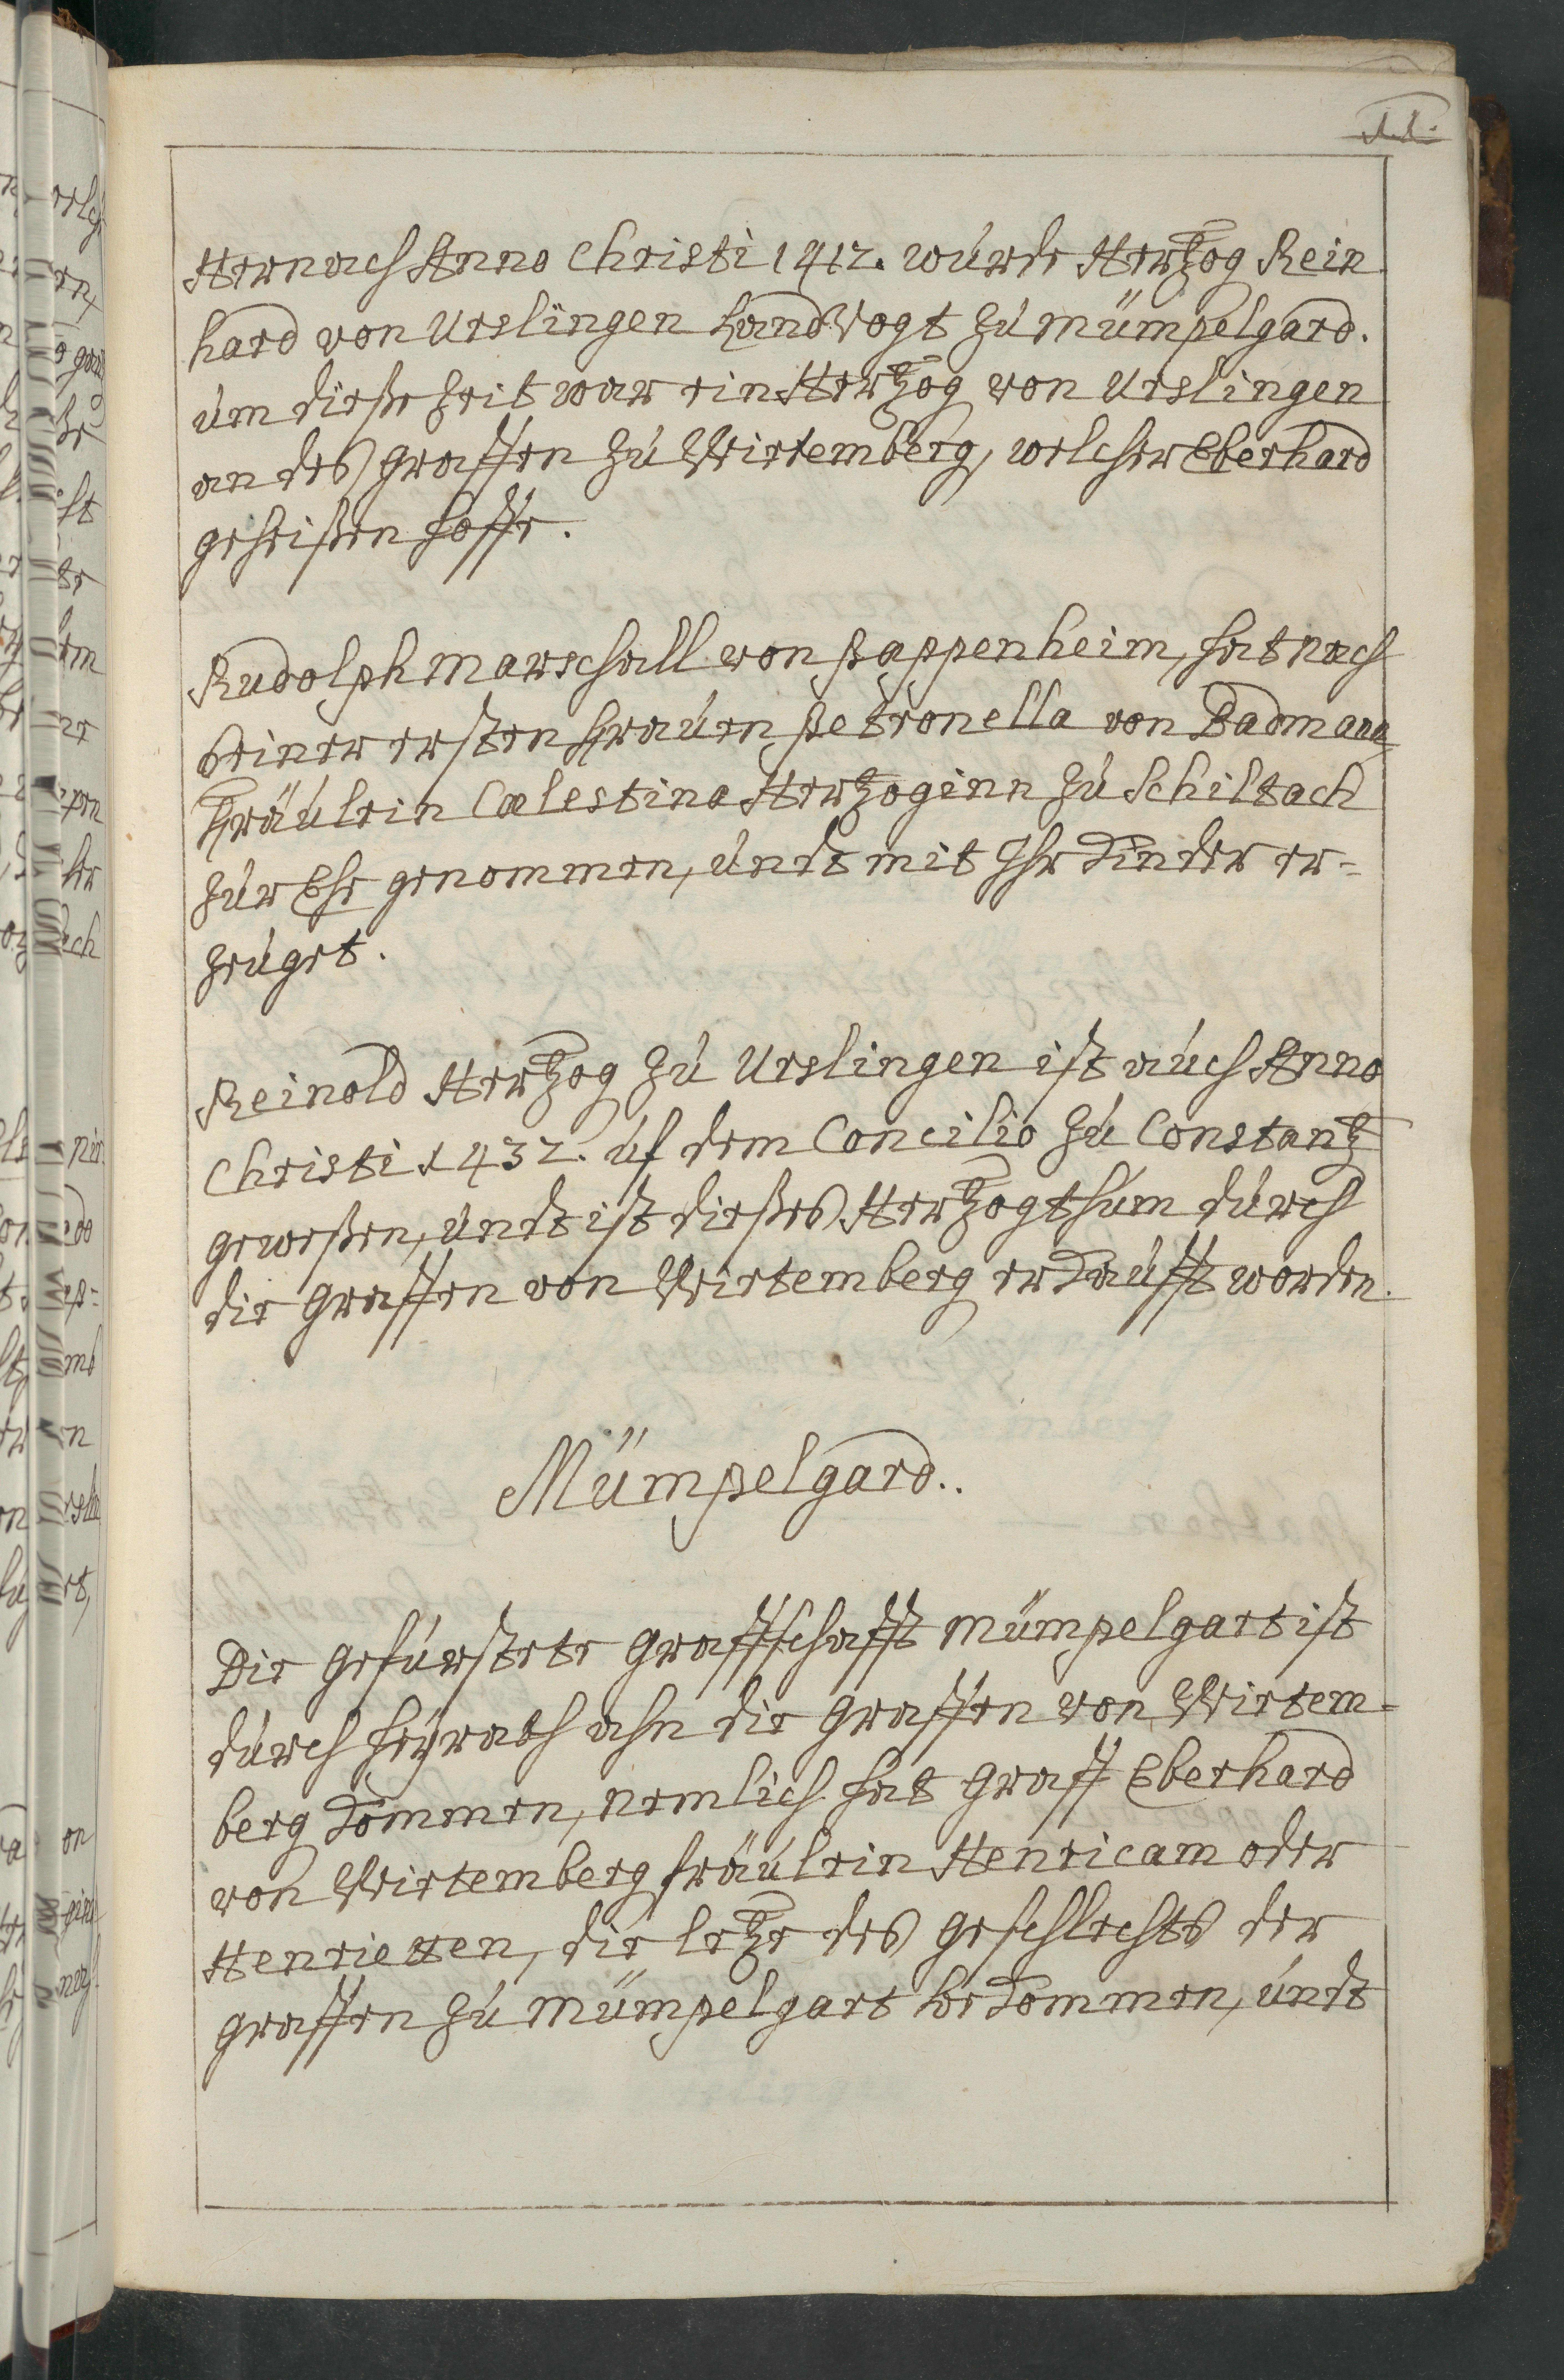 11.
Hernach Anno Christi 1412. wurde Hertzog Rein
hard von Urslingen Landvogt zu Mümpelgard.
um dieße Zeit war ein Hertzog von Urslingen
an des Graffen zu Wirtemberg, welcher Eberhard
geheißen Hoffe.
Rudolph Marschall von Pappenheim, hat nach
seiner ersten Frauen Petronella von Badmann
Fräulein Cœlestina Hertzoginn zu Schiltach
zur Ehe genommen, undt mit Ihr Kinder er=
zeuget.
Reinold Hertzog zu Urslingen ist auch Anno
Christi 1432. uf dem Concilio zu Constantz
geweßen, undt ist dießes Hertzogthum durch
die Graffen von Wirtemberg erkaufft worden.
Mümpelgard.
Die gefürstete Graffschafft Mümpelgart ist
durch Heyrath ahn die Graffen von Wirtem=
berg kommen, nemlich hat Graff Eberhard
von Wirtemberg fräulein Henricam oder
Henrietten, die letze des Geschlechts der
Graffen zu Mümpelgart bekommen, undt